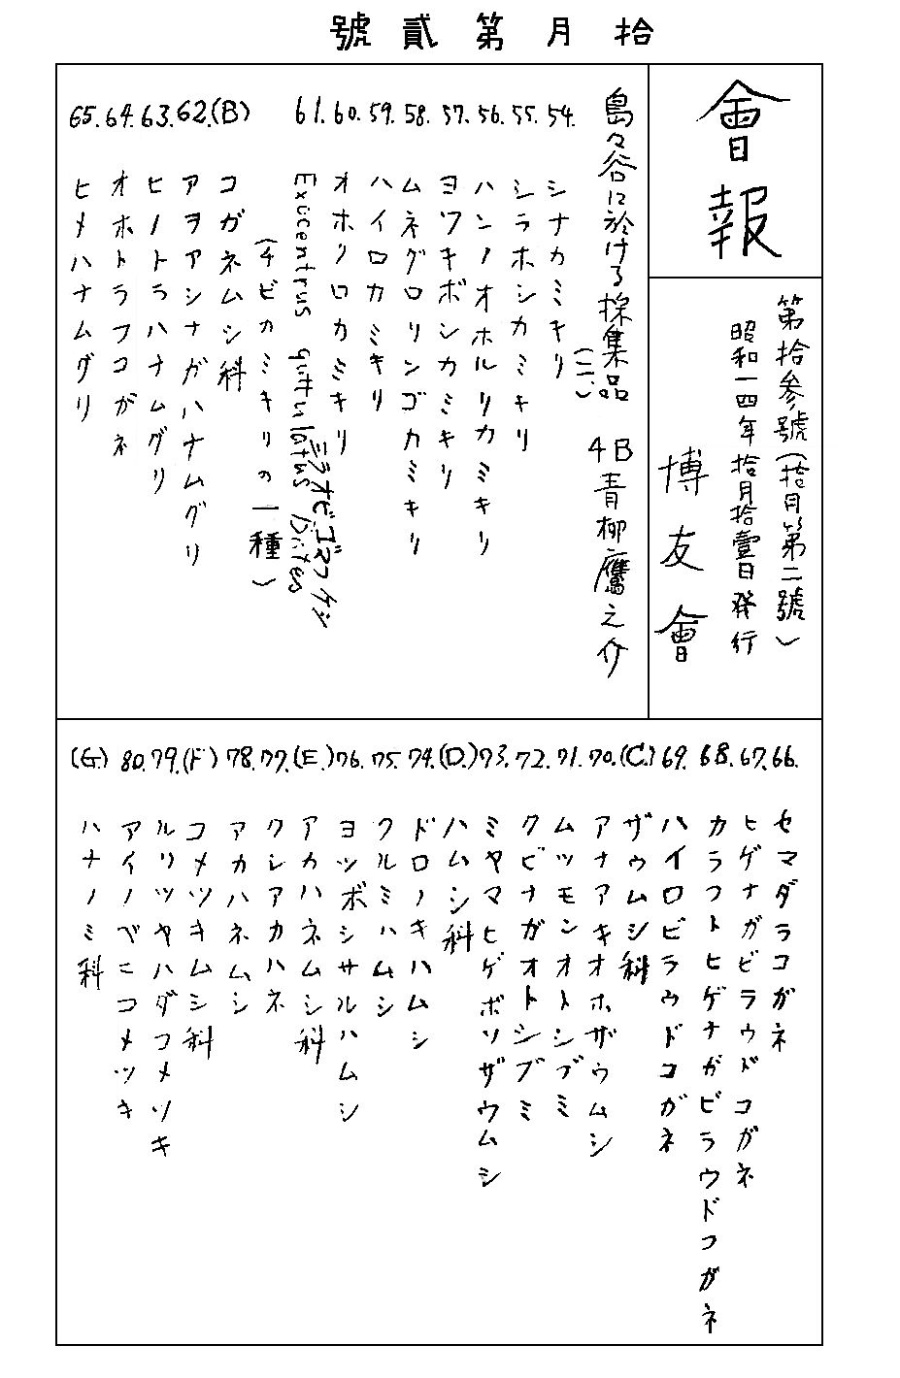 拾月第貳號
會報
第拾参號(拾月第二號)
昭和一四年拾月拾壹日発行
博友會
島々谷に於ける採集品(二、) 4B青柳鷹之介
54. シナカミキリ
55. シラホシカミキリ
56. ハンノオホルリカミキリ
57. ヨツキボシカミキリ
58. ムネグロリンゴカミキリ
59. ハイロカミキリ
60. オホクロカミキリ
61. Exocentrus guttulatus Bates
ミラオビゴマフケシ
(チビカミキリの一種)
(B) コガネムシ科
62. アヲアシナガハナムグリ
63. ヒノトラハナムグリ
64. オホトラフコガネ
65. ヒメハナムグリ
66. セマダラコガネ
67. ヒゲナガビラウドコガネ
68. カラフトヒゲナガビラウドコガネ
69. ハイロビラウドコガネ
(C.) ザウムシ科
70. アナアキオホザウムシ
71. ムツモンオトシブミ
72. クビナガオトシブミ
73. ミヤマヒゲボソザウムシ
(D.) ハムシ科
74. ドロノキハムシ
75. クルミハムシ
76. ヨツボシサルハムシ
(E.) アカハネムシ科
77. クシアカハネ
78. アカハネムシ
(F) コメツキムシ科
79. ルリツヤハダコメツキ
80. アイノベニコメツキ
(G.) ハナノミ科